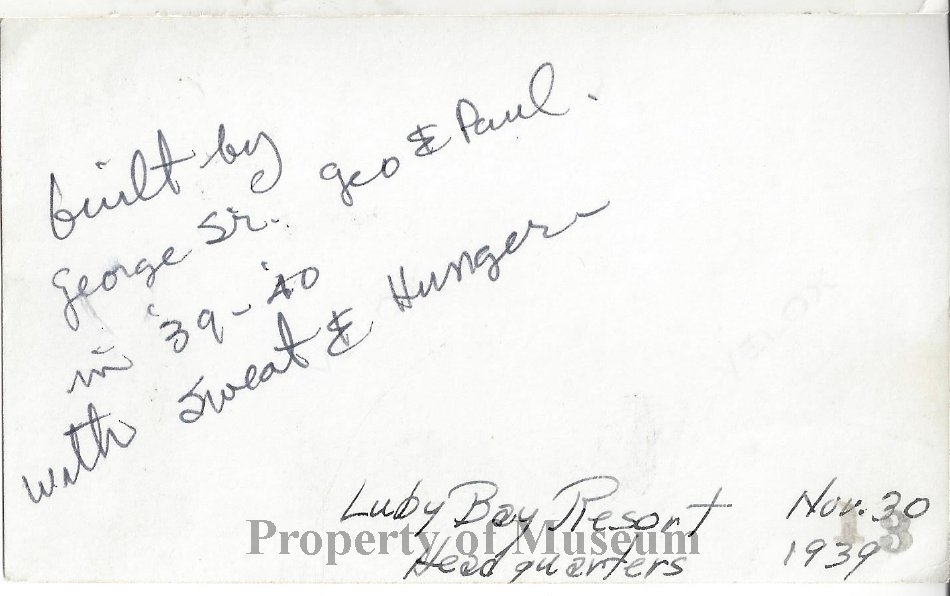 built by
George Sr. Geo & Paul.
in '39-'40
with Sweat & Hunger
Luby Bay Resort Nov. 30
Headquarters 1939
Property of Museum
13